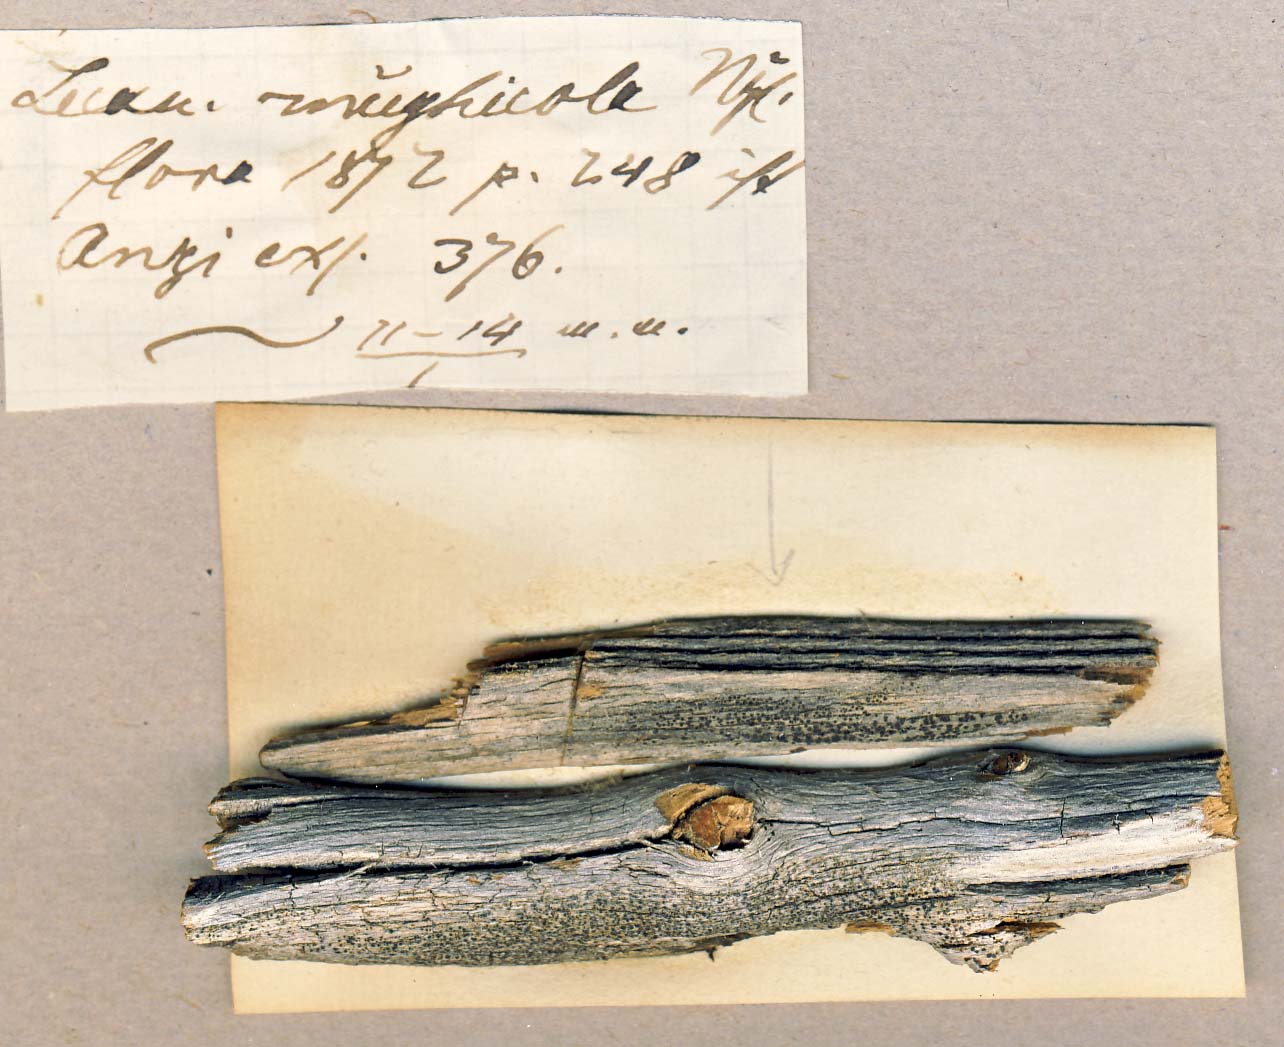 Lecan. mughicola Nyl.
flora 1872 p. 248 ist
Anzi exs. 376.
11–14 m.m.